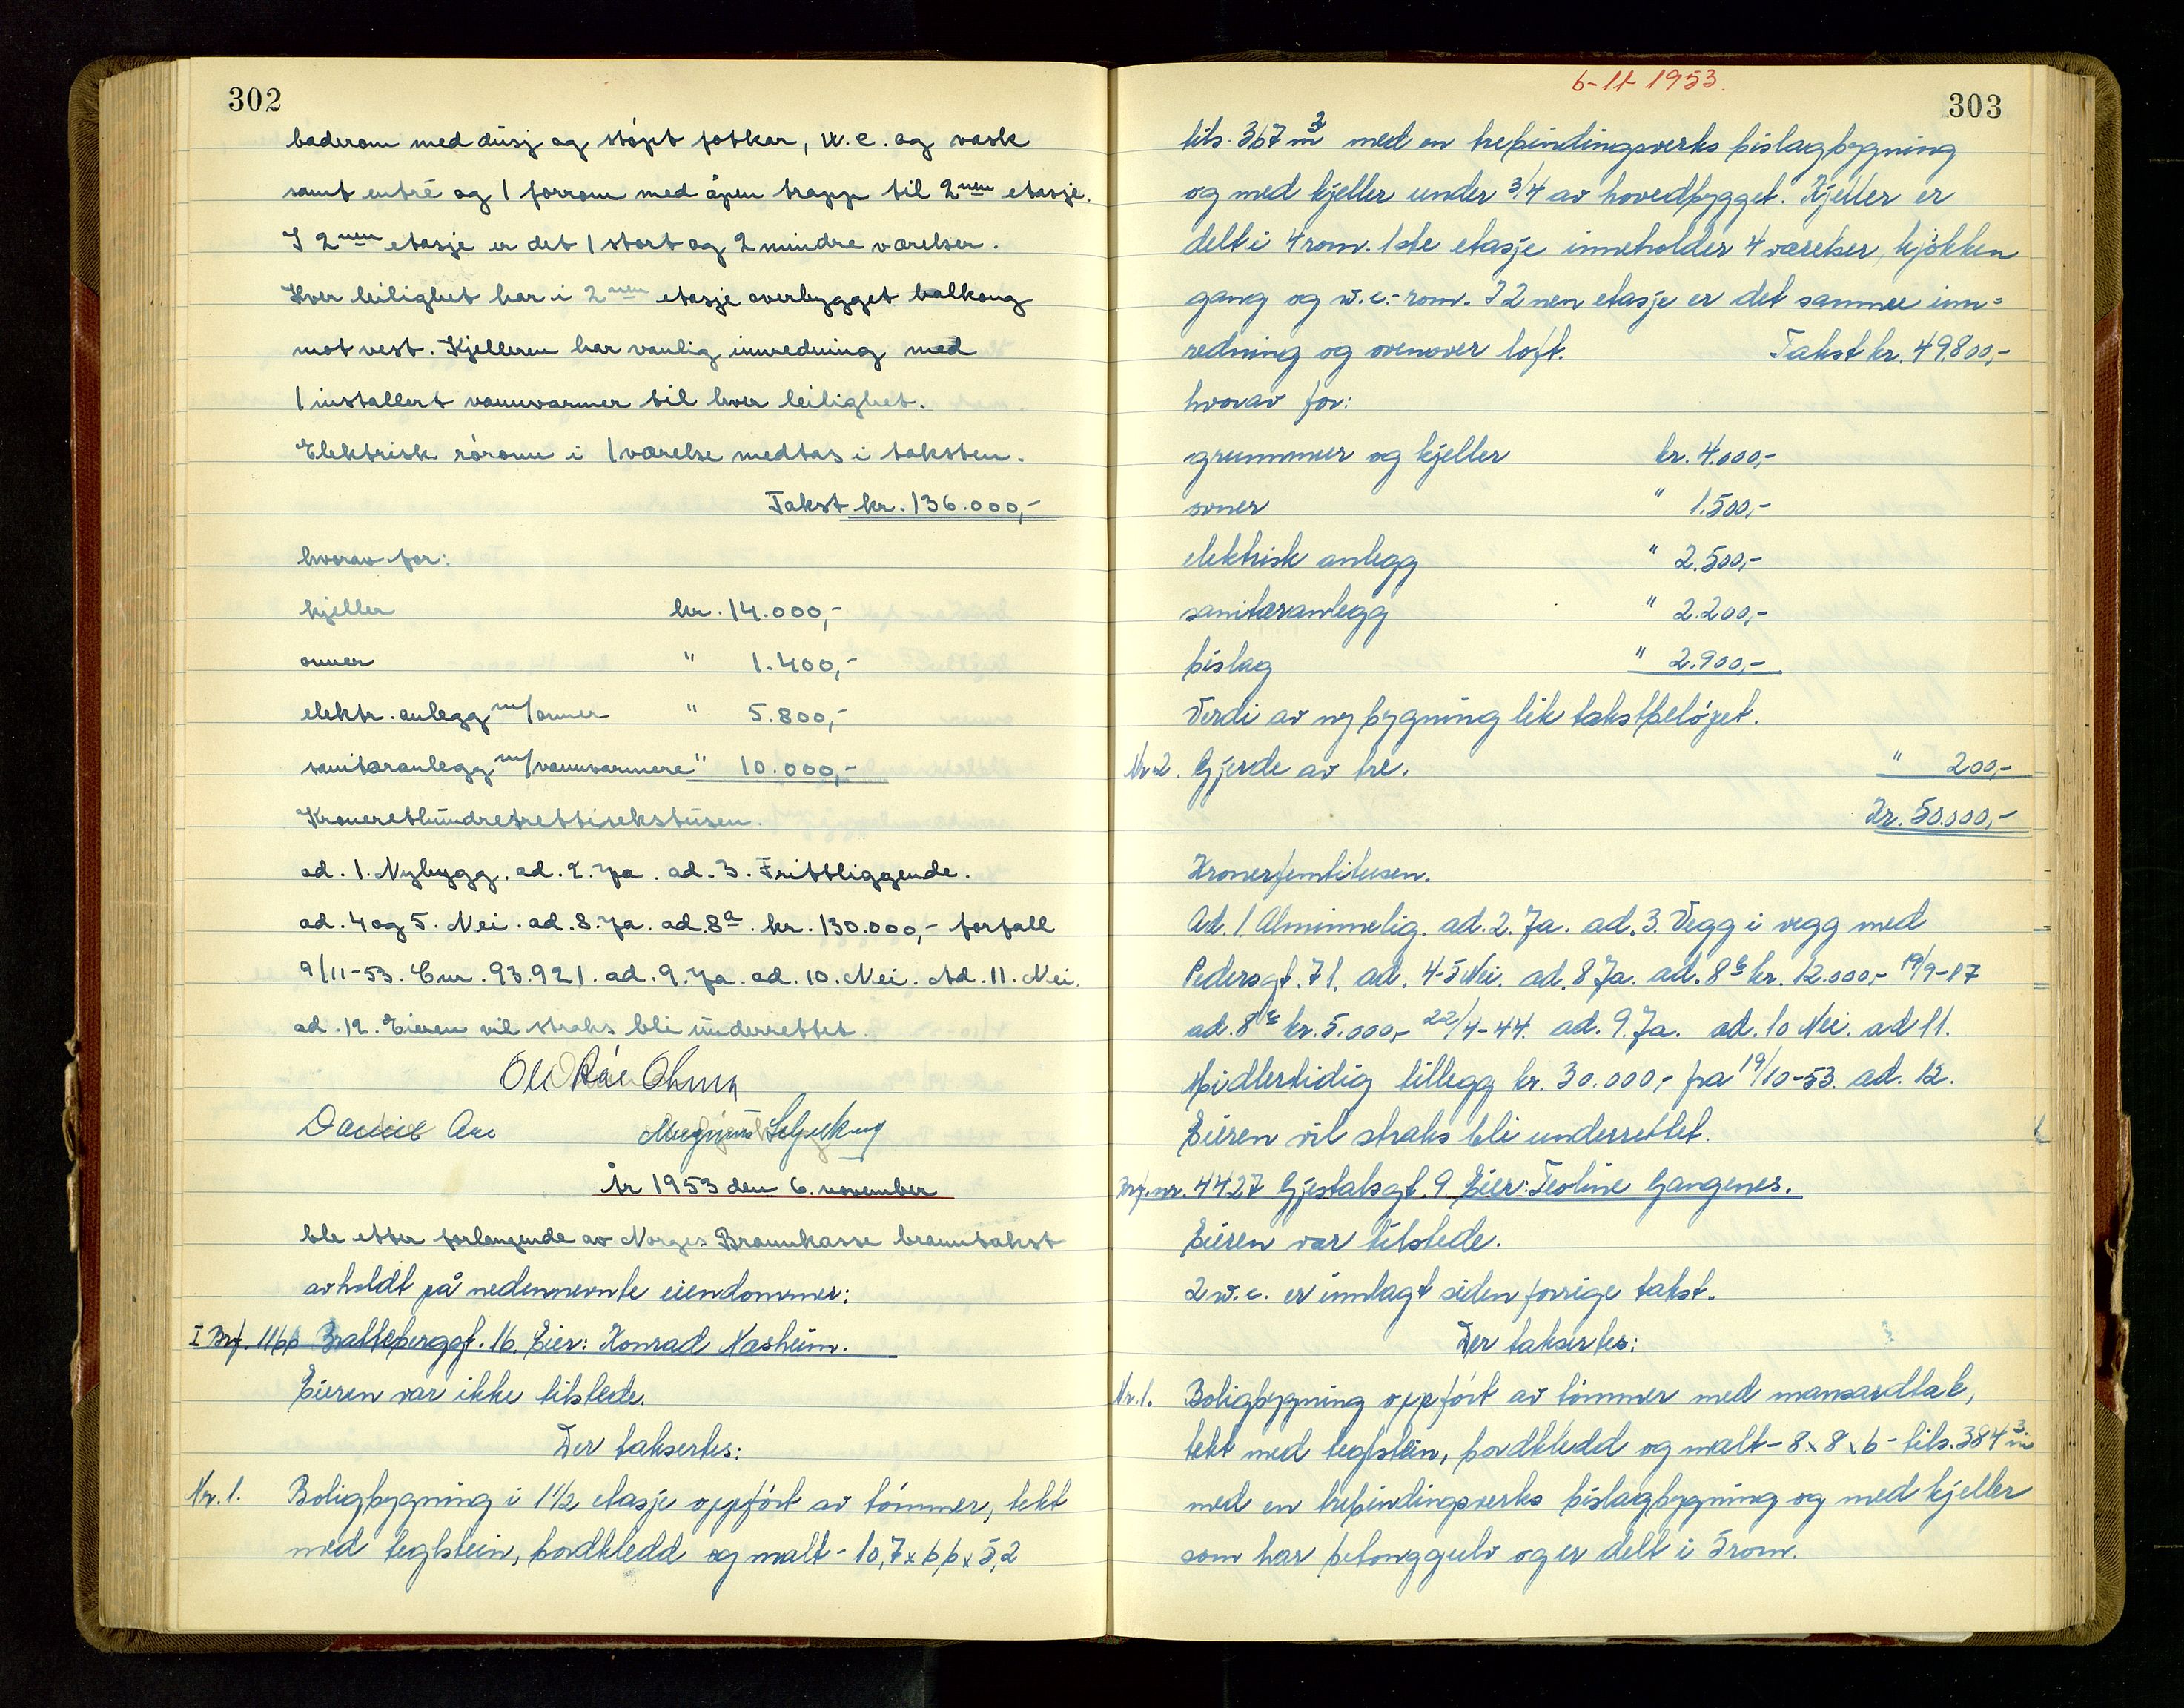 302
baderom med dusj og støpt fotkar, w.c. og vask
samt entré og 1 forrom med åpen trapp til 2nen etasje.
I 2nen etasje er det 1 stort og 2 mindre værelser.
Hver leilighet har i 2nen etasje overbygget balkong
mot vest. Kjelleren har vanlig innredning med
1 installert vannvarmer til hver leilighet.
Elektrisk rørovn i 1 værelse medtas i taksten.
Takst kr. 136.000,-
hvorav for:
kjeller kr. 14.000,-
ovner " 1.400,-
elektr. anlegg m/ovner " 5.800,-
sanitæranlegg m/vannvarmere " 10.000,-
Kroneretthundretrettisekstusen.
ad. 1. Nybygg. ad. 2. Ja. ad. 3. Frittliggende.
ad. 4 og 5. Nei. ad. 8. Ja. ad. 8a. kr. 130.000,- forfall
9/11-53. Enr. 93.921. ad. 9. Ja. ad. 10. Nei. Ad. 11. Nei.
ad. 12. Eieren vil straks bli underrettet.
År 1953 den 6. november
ble etter forlangende av Norges Brannkasse branntakst
avholdt på nedennevnte eiendommer:
I Brf. 1166 Brattebergsgt. 16. Eier: Konrad Nasheim.
Eieren var ikke tilstede.
Der taksertes:
Nr. 1. Boligbygning i 1 1/2 etasje oppført av tømmer, tekt
med teglstein, bordkledd og malt - 10,7 x 6,6 x 5,2
6-11-1953.
303
tils. 367 m3 med en trebindingsverks bislagbygning
og med kjeller under 3/4 av hovedbygget. Kjeller er
delt i 4 rom. 1ste etasje inneholder 4 værelser, kjøkken
gang og w.c.-rom. I 2nen etasje er det samme inn=
redning og ovenover loft. Takst kr. 49.800,-
hvorav for:
grunnmur og kjeller kr. 4.000,-
ovner " 1.500,-
elektrisk anlegg " 2.500,-
sanitæranlegg " 2.200,-
bislag " 2.900,-
Verdi av ny bygning lik takstbeløpet.
Nr. 2. Gjerde av tre. " 200,-
Kr. 50.000,-
Kronerfemtitusen.
Ad. 1. Alminnelig. ad. 2. Ja. ad. 3. Vegg i vegg med
Pedersgt. 71. ad. 4-5 Nei. ad. 8 Ja. ad. 8b kr. 12.000,- 19/9-17
ad. 8c kr. 5.000,- 22/4-44. ad. 9. Ja. ad. 10 Nei. ad 11.
Midlertidig tillegg kr. 30.000,- fra 19/10-53. ad. 12.
Eieren vil straks bli underrettet.
Brf. nr. 4427 Gjestalsgt. 9. Eier: Teoline Gangenes.
Eieren var tilstede.
2 w.c. er innlagt siden forrige takst.
Der taksertes:
Nr. 1. Boligbygning oppført av tømmer med mansardtak,
tekt med teglstein, bordkledd og malt - 8 x 8 x 6 - tils. 384 m3
med en trebindingsverks bislagbygning og med kjeller
som har betonggulv og er delt i 5 rom.